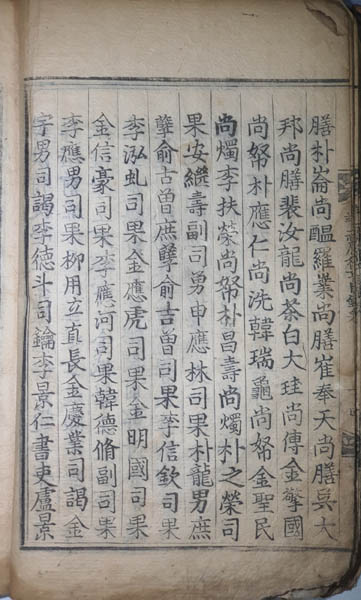 膳朴崙尚醞羅業尚膳崔奉天尚膳吳大
邦尚膳裴汝龍尚茶白大珪尚傳金擎國
尚帑朴應仁尚洗韓瑞龜尚帑金聖民
尚燭李扶榮尚帑朴昌壽尚燭朴之榮司
果安繼壽副司勇申應林司果朴龍男庶
孽俞古曽庶孽俞吉曽司果李信欽司果
李泓虬司果金應虎司果金明國司果
金信豪司果李應河司果韓德脩副司果
李應男司果柳用立直長金慶業司謁金
宇男司謁李德斗司鑰李景仁書吏盧景